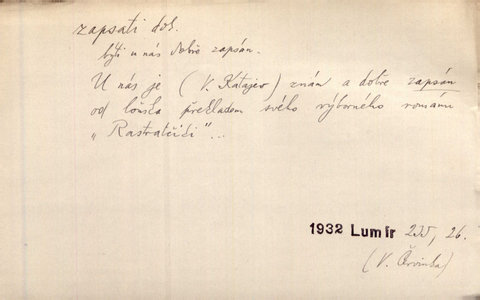 zapsati dok.
býti u nás dobře zapsán.
U nás je (V. Katajev) znán a dobře zapsán
od loňska překladem svého výborného románu
„Rastratčiki"...
1932 Lumír 26.
(V. Červinka)